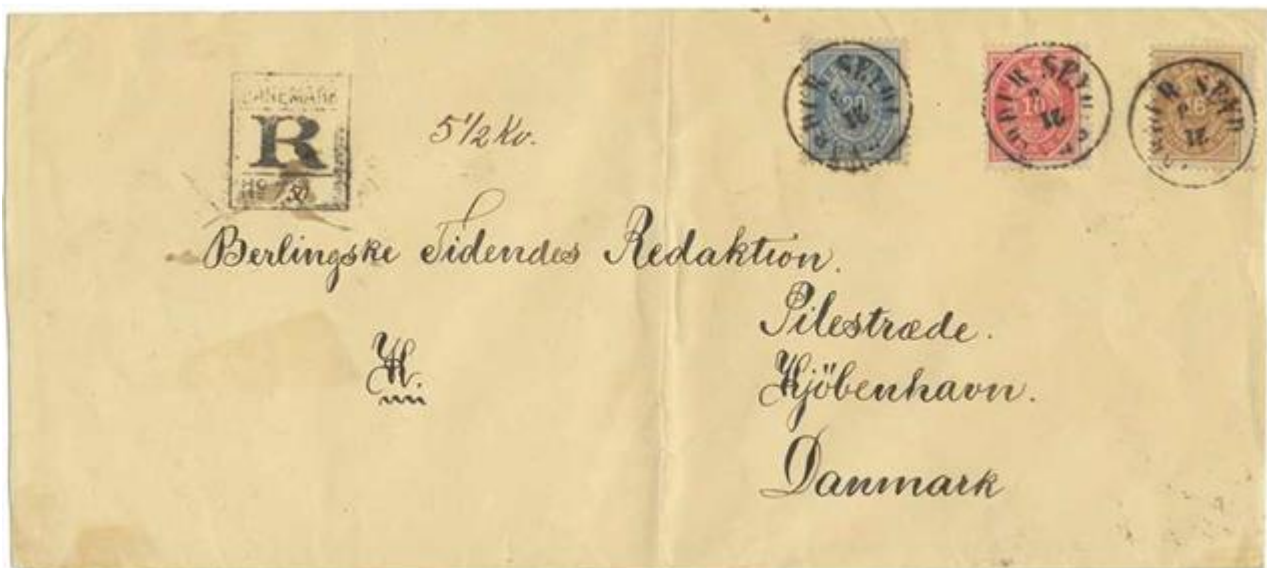 DANEMARK
R
5 1/2 Kv.
20
10
16
Berlingske Tidendes Redaktion.
Pilestræde.
Kjöbenhavn.
K.
Danmark